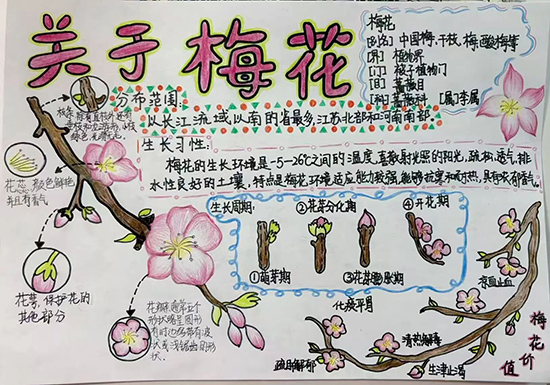 关于梅花
梅花
[别名] 中国梅、干枝梅、酸梅等
[界] 植物界
[门] 被子植物门
[目] 蔷薇目
[科] 蔷薇科 [属] 李属
分布范围:
以长江流域以南的省最多,江苏北部和河南南部.
生长习性:
梅花的生长环境是-5-26℃之间的温度,喜散射光照的阳光,疏松,透气,排
水性良好的土壤,特点是梅花环境适应能力较强,能够抗寒和耐热,具有
花蕊,颜色鲜艳
并且有香气
花萼,保护花的
其他部分
生长周期:
①萌芽期
②花芽分化期
③花蕾膨胀期
④开花期
梅花价值
止血
化痰平
清热解毒
生津止渴
疏肝解郁